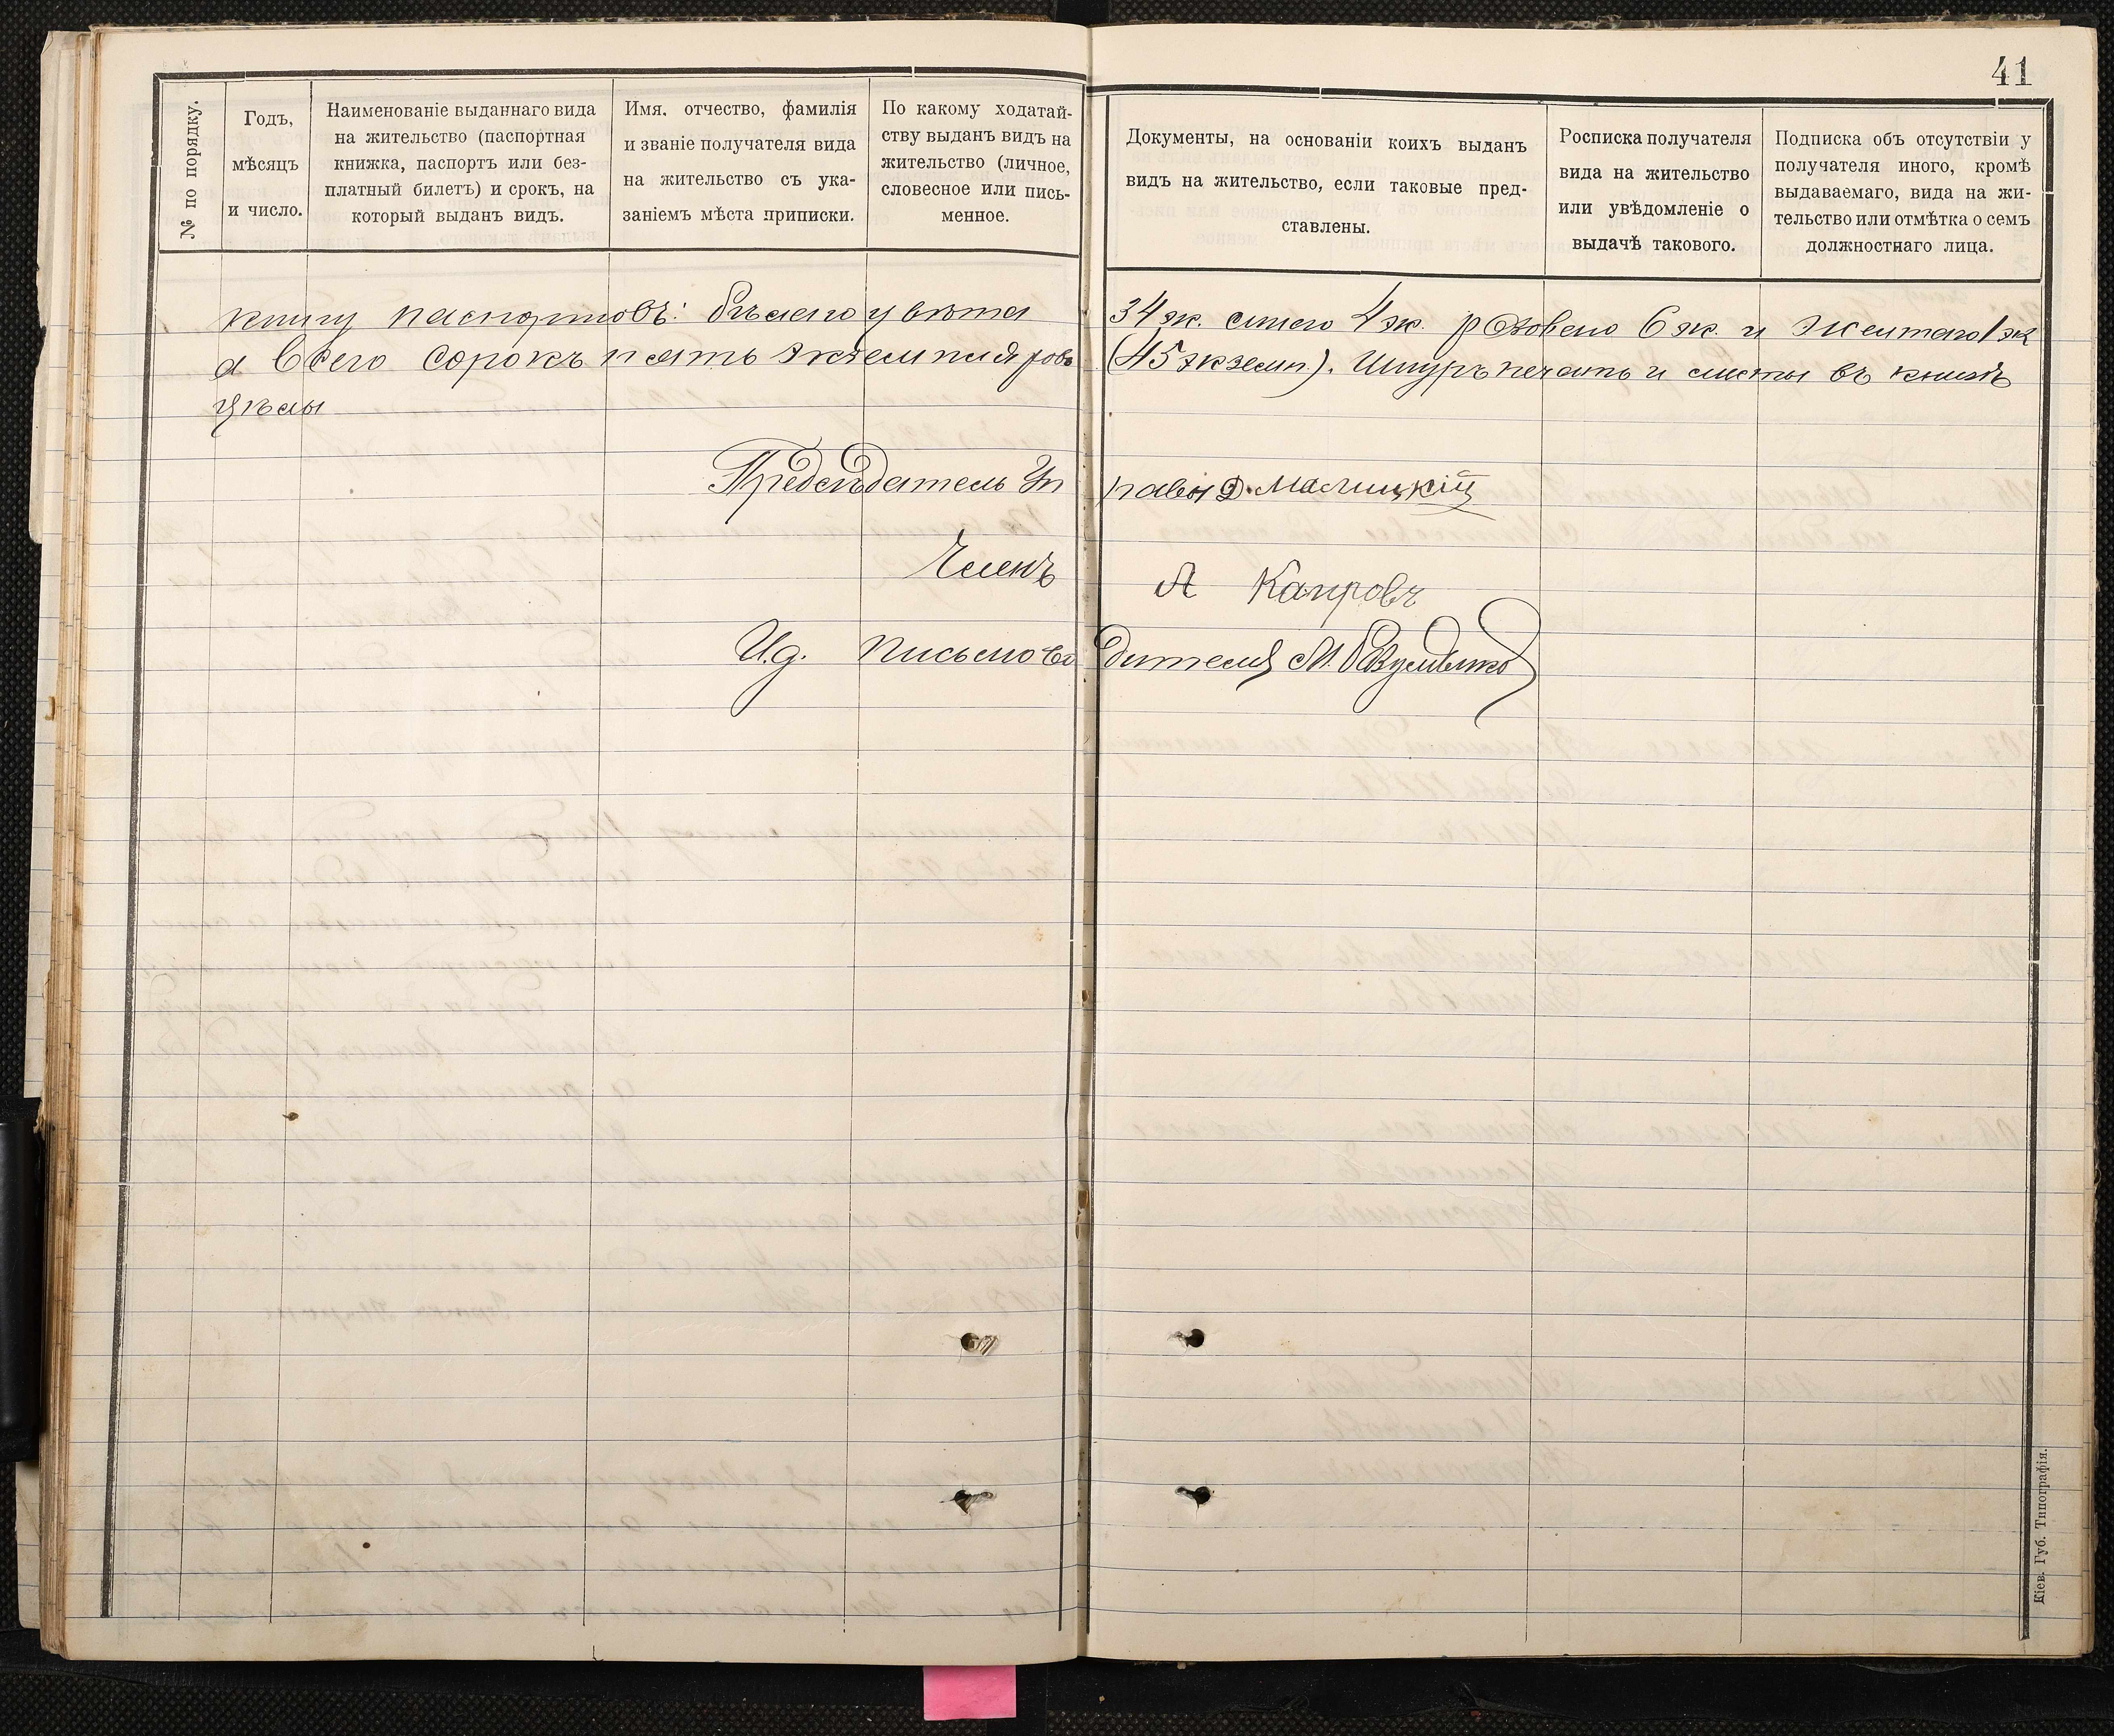 41
№ по порядку.
Годъ,
мѣсяцъ
и число.
Наименованіе выданнаго вида
на жительство (паспортная
книжка, паспортъ или без-
платный билетъ) и срокъ, на
который выданъ видъ.
Имя, отчество, фамилія
и званіе получателя вида
на жительство съ ука-
заніемъ мѣста приписки.
По какому ходатай-
ству выданъ видъ на
жительство (личное,
словесное или пись-
менное.
Документы, на основаніи коихъ выданъ
видъ на жительство, если таковые пред-
ставлены.
Росписка получателя
вида на жительство
или увѣдомленіе о
выдачѣ такового.
Подписка объ отсутствіи у
получателя иного, кромѣ
выдаваемаго, вида на жи-
тельство или отмѣтка о семъ
должностнаго лица.
книгу паспортовъ: бѣлаго цвѣта 34 эк. синего 4 эк. розового 6 эк. и желтаго 1 эк
а всего сорокъ пять экземпляровъ (45 экземп.). Шнуръ печать и листы въ книгѣ
цѣлы
Предсѣдатель Управы Д. Малицкій
Членъ А Капровъ
И.д. письмоводителя М.
Кіев. Губ. Типографія.